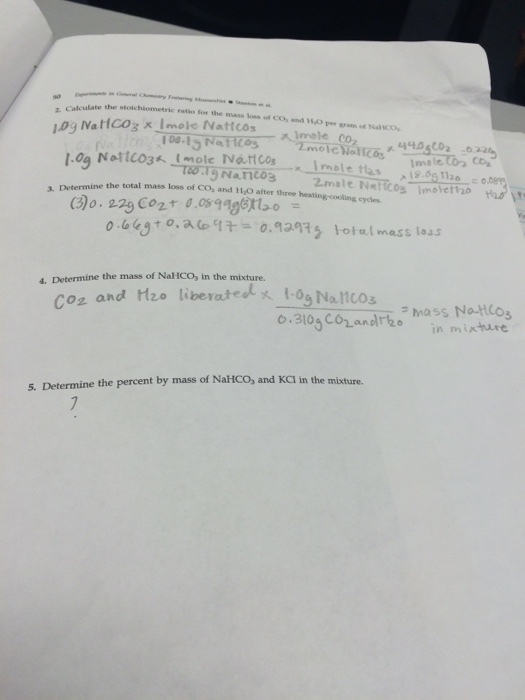 50 Experiments in General Chemistry Featuring
2. Calculate the stoichiometric ratio for the mass loss of CO₂ and H₂O per gram of NaHCO₃.
1.0g NaHCO3 x 1mole NaHCO3 / 100.1g NaHCO3 x 1mole CO2 / 2mole NaHCO3 x 44.0g CO2 / 1mole CO2 = 0.22g CO2
1.0g NaHCO3 x 1mole NaHCO3 / 100.1g NaHCO3 x 1mole H2O / 2mole NaHCO3 x 18.0g H2O / 1mole H2O = 0.0899 H2O
3. Determine the total mass loss of CO₂ and H₂O after three heating-cooling cycles.
(3)0.22g CO2 + 0.0899g(3)H2O =
0.66g + 0.2697 = 0.9297g total mass loss
4. Determine the mass of NaHCO₃ in the mixture.
CO2 and H2O liberated x 1.0g NaHCO3 / 0.310g CO2 and H2O = mass NaHCO3 in mixture
5. Determine the percent by mass of NaHCO₃ and KCl in the mixture.
?